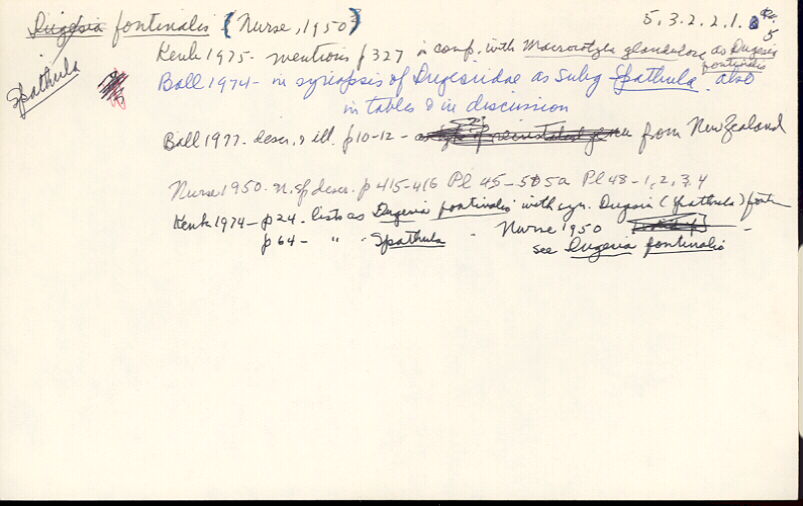 Dugesia fontinalis (Nurse, 1950) 5.3.2.2.1.
5
Spathula
Kenk 1975- mentions p 327 in comp. with Macrocotyla glandulosa as Dugesia fontinalis
Ball 1974- in synopsis of Dugesiidae as subg Spathula. also
in tables & in discussion
Ball 1977. descr. & ill. p10-12 - from New Zealand
Nurse 1950. n. sp descr. p 415-416 Pl 45- Pl 48-1, 2, 3, 4
Kenk 1974- p24. lists as Dugesia fontinalis with syn. Dugesia (Spathula) font
p64- " - Spathula - Nurse 1950 -
see Dugesia fontinalis